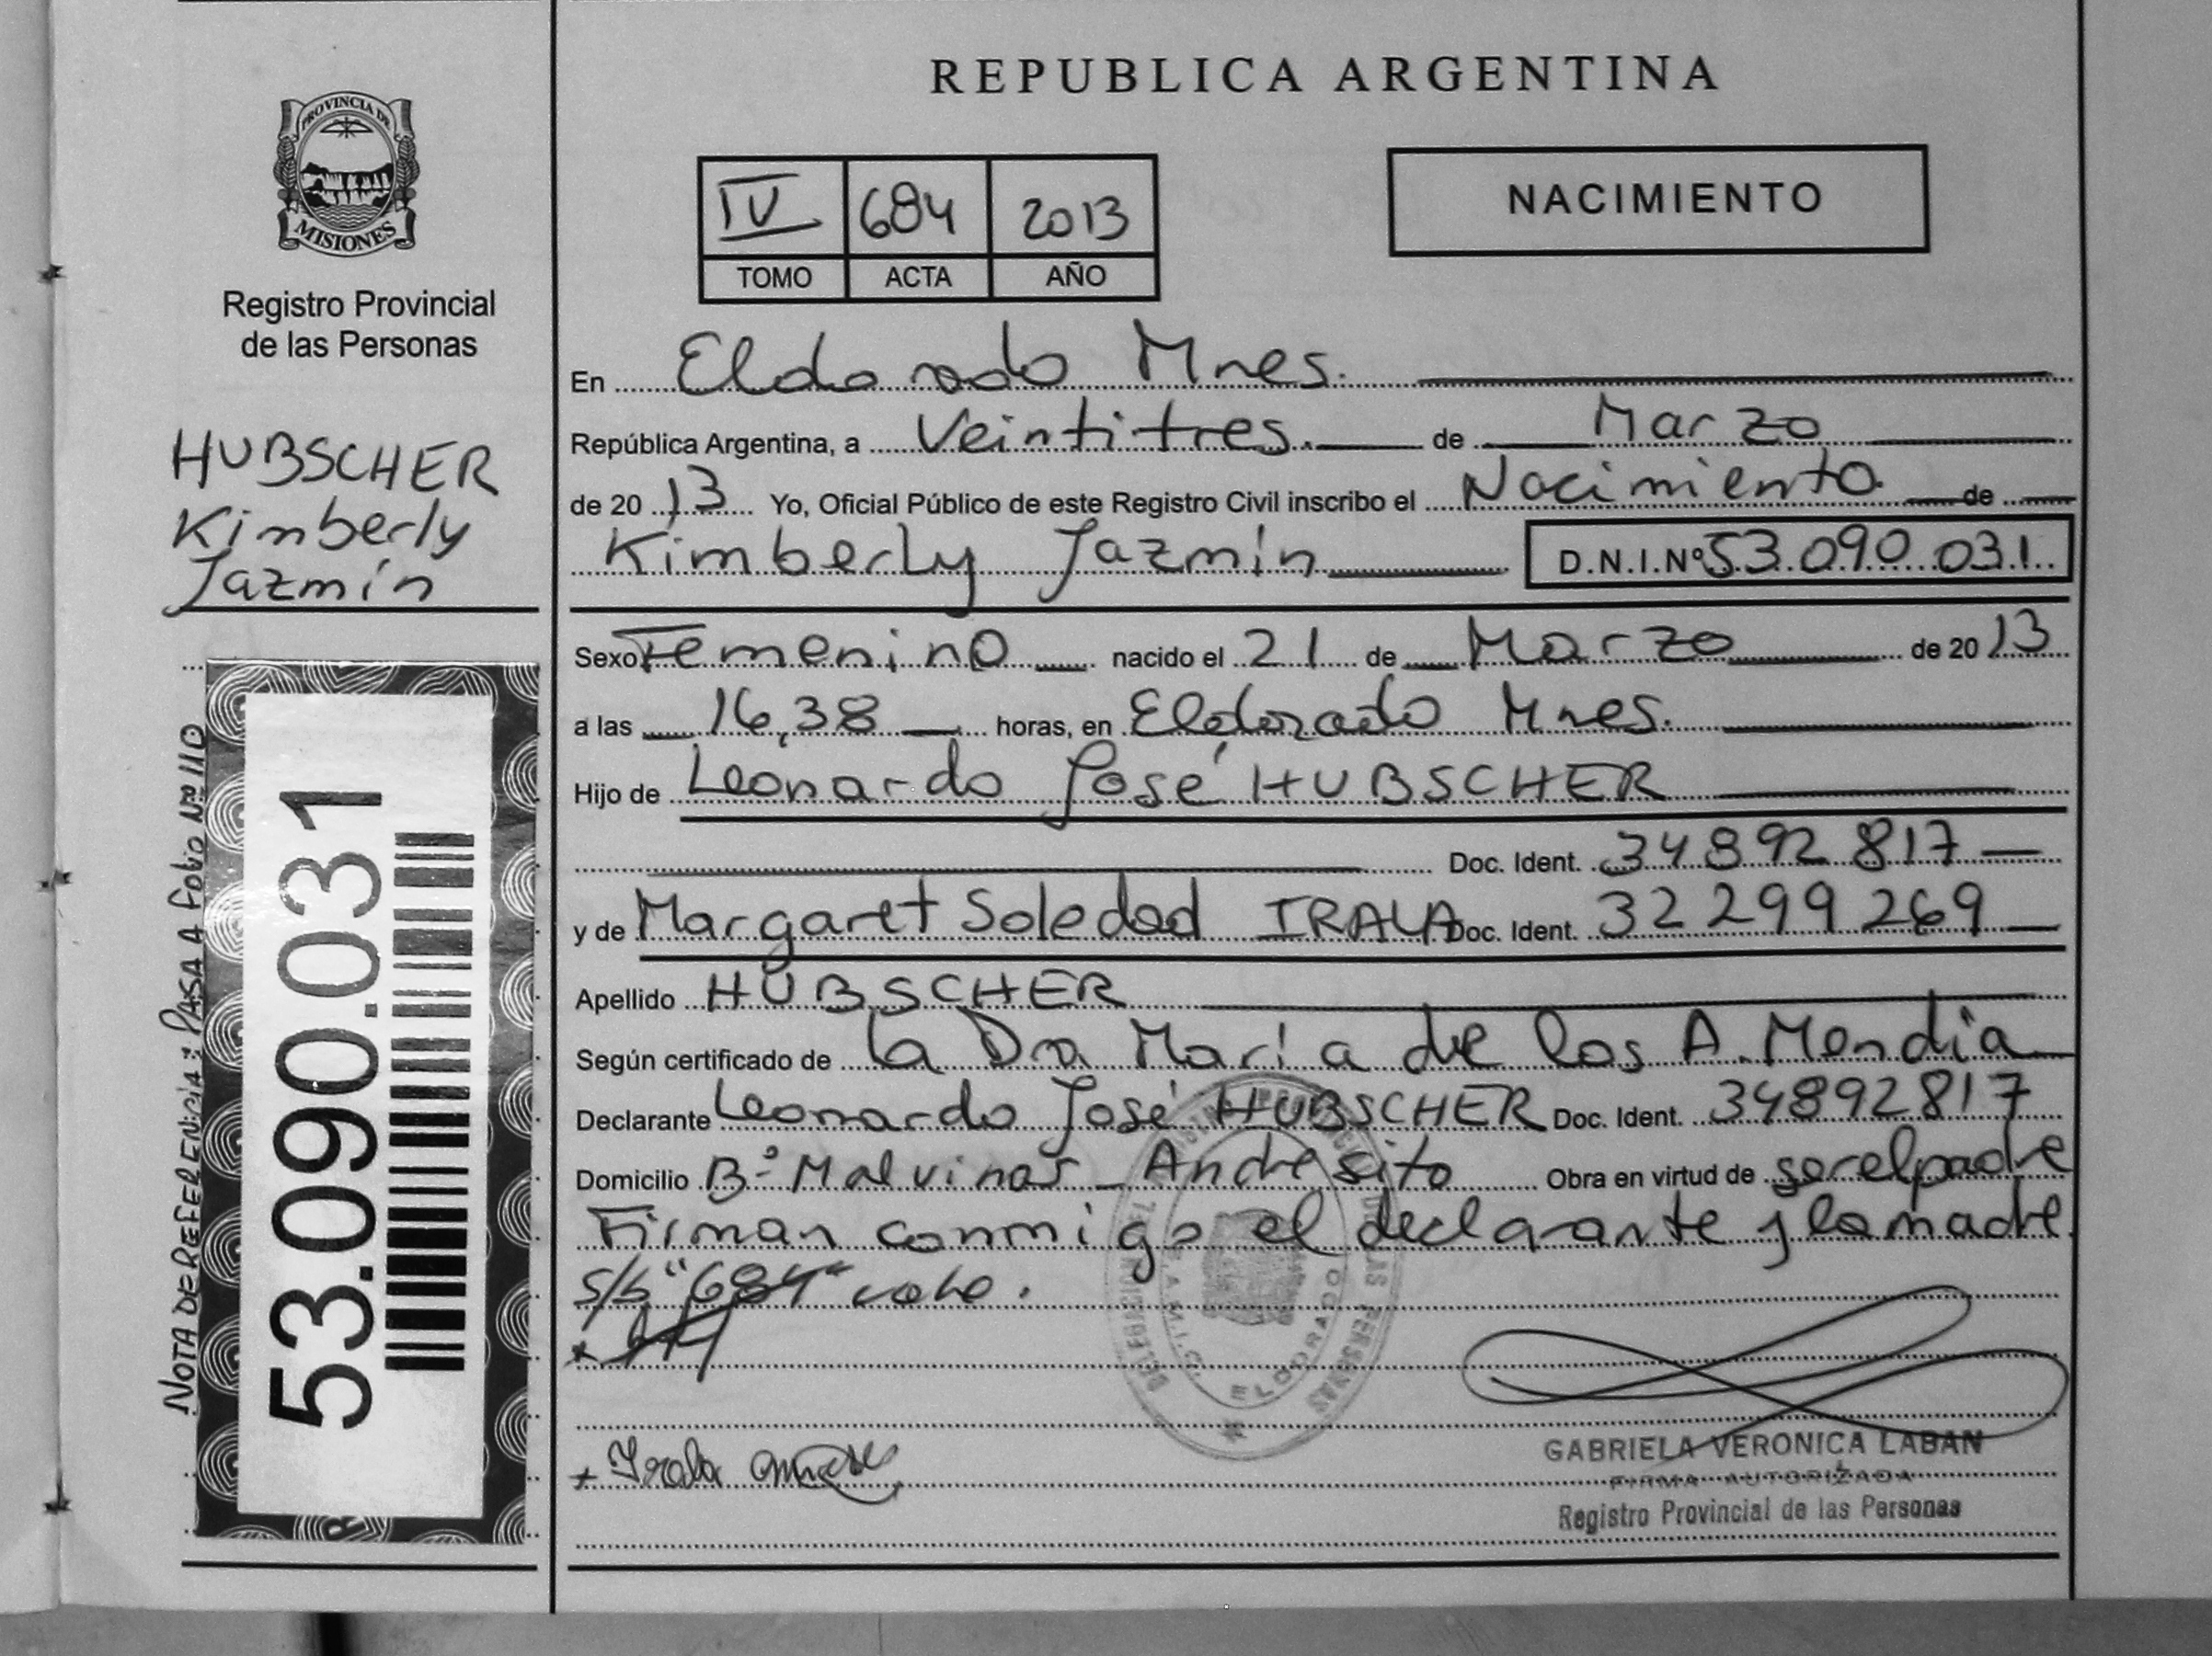 REPUBLICA ARGENTINA
PROVINCIA DE
MISIONES
Registro Provincial
de las Personas
IV 684 2013
TOMO ACTA AÑO
NACIMIENTO
HUBSCHER
Kimberly
Jazmín
NOTA DE REFERENCIA: PASA A Folio Nro 110
53.090.031
En Eldorado Mnes.
República Argentina, a Veintitres. de Marzo
de 2013 Yo, Oficial Público de este Registro Civil inscribo el Nacimiento de
Kimberly Jazmín D.N.I.Nº 53.090.031.
Sexo Femenino nacido el 21 de Marzo de 2013
a las 16,38 horas, en Eldorado Mnes.
Hijo de Leonardo José HUBSCHER
Doc. Ident. 34892817
y de Margaret Soledad IRALA Doc. Ident. 32299269
Apellido HUBSCHER
Según certificado de la Dra María de los A. Mendia
Declarante Leonardo José HUBSCHER Doc. Ident. 34892817
Domicilio Bº Malvinas - Andresito Obra en virtud de ser el padre
Firman conmigo el declarante y la madre.
s/b "684" vale.
Irala
ELDORADO
DE LAS PERSONAS
GABRIELA VERONICA LABAN
FIRMA AUTORIZADA
Registro Provincial de las Personas